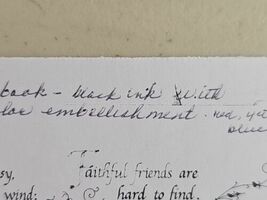 book - black ink with
embellishment - red,
blue
sy, Faithful friends are
wind; hard to find.